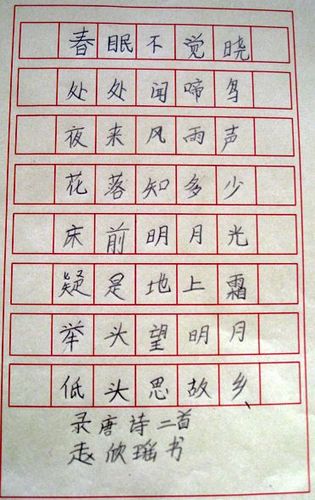 春眠不觉晓
处处闻啼鸟
夜来风雨声
花落知多少
床前明月光
疑是地上霜
举头望明月
低头思故乡
录唐诗二首
赵欣瑶书